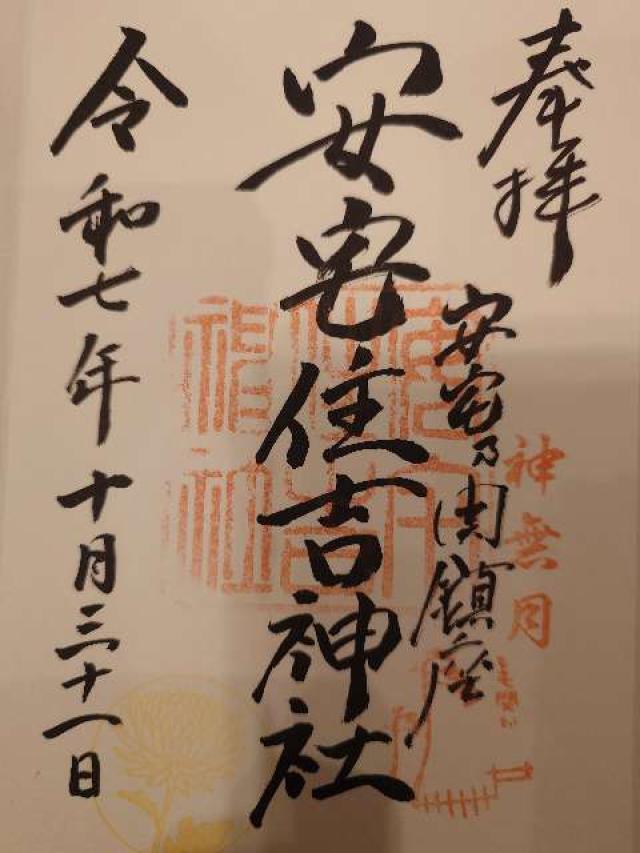 奉拝
安宅乃関鎮座
神無月
安宅住吉神社
令和七年十月三十一日